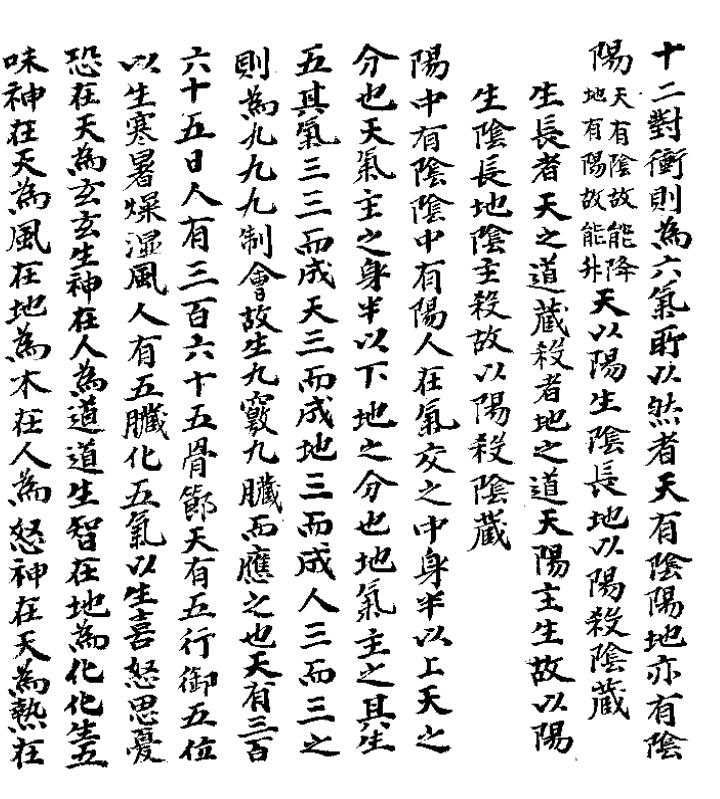 十二對衝則為六氣所以然者天有陰陽地亦有陰
陽天有陰故能降地有陽故能升天以陽生陰長地以陽殺陰藏
生長者天之道藏殺者地之道天陽主生故以陽
生陰長地陰主殺故以陽殺陰藏
陽中有陰陰中有陽人在氣交之中身半以上天之
分也天氣主之身半以下地之分也地氣主之其生
五其氣三三而成天三而成地三而成人三而三之
則為九九九九制會故生九竅九臟而應之也天有三百
六十五日人有三百六十五骨節天有五行御五位
以生寒暑燥湿風人有五臟化五氣以生喜怒思憂
恐在天為玄玄生神在人為道道生智在地為化化生五
味神在天為風在地為木在人為怒神在天為熱在